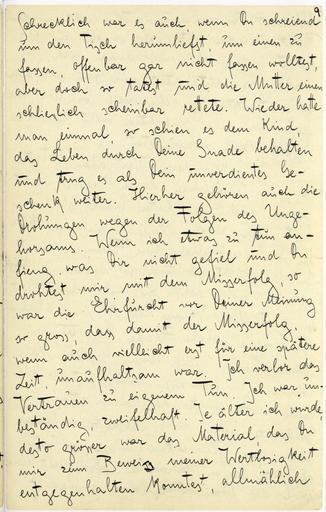 9
Schrecklich war es auch, wenn Du schreiend
um den Tisch herumliefst, um einen zu
fassen, offenbar gar nicht fassen wolltest,
aber doch so tatest und die Mutter einen
schliesslich scheinbar rettete. Wieder hatte
man einmal, so schien es dem Kind,
das Leben durch Deine Gnade behalten
und trug es als Dein unverdientes Ge-
schenk weiter. Hierher gehören auch die
Drohungen wegen der Folgen des Unge-
horsams. Wenn ich etwas zu tun an-
fieng, was Dir nicht gefiel und Du
drohtest mir mit dem Misserfolg, so
war die Ehrfurcht vor Deiner Meinung
so gross, dass damit der Misserfolg,
wenn auch vielleicht erst für eine spätere
Zeit, unaufhaltsam war. Ich verlor das
Vertrauen zu eigenem Tun. Ich war un-
beständig, zweifelhaft. Je älter ich wurde,
desto grösser war das Material, das Du
mir zum Beweis meiner Wertlosigkeit
entgegenhalten konntest, allmählich